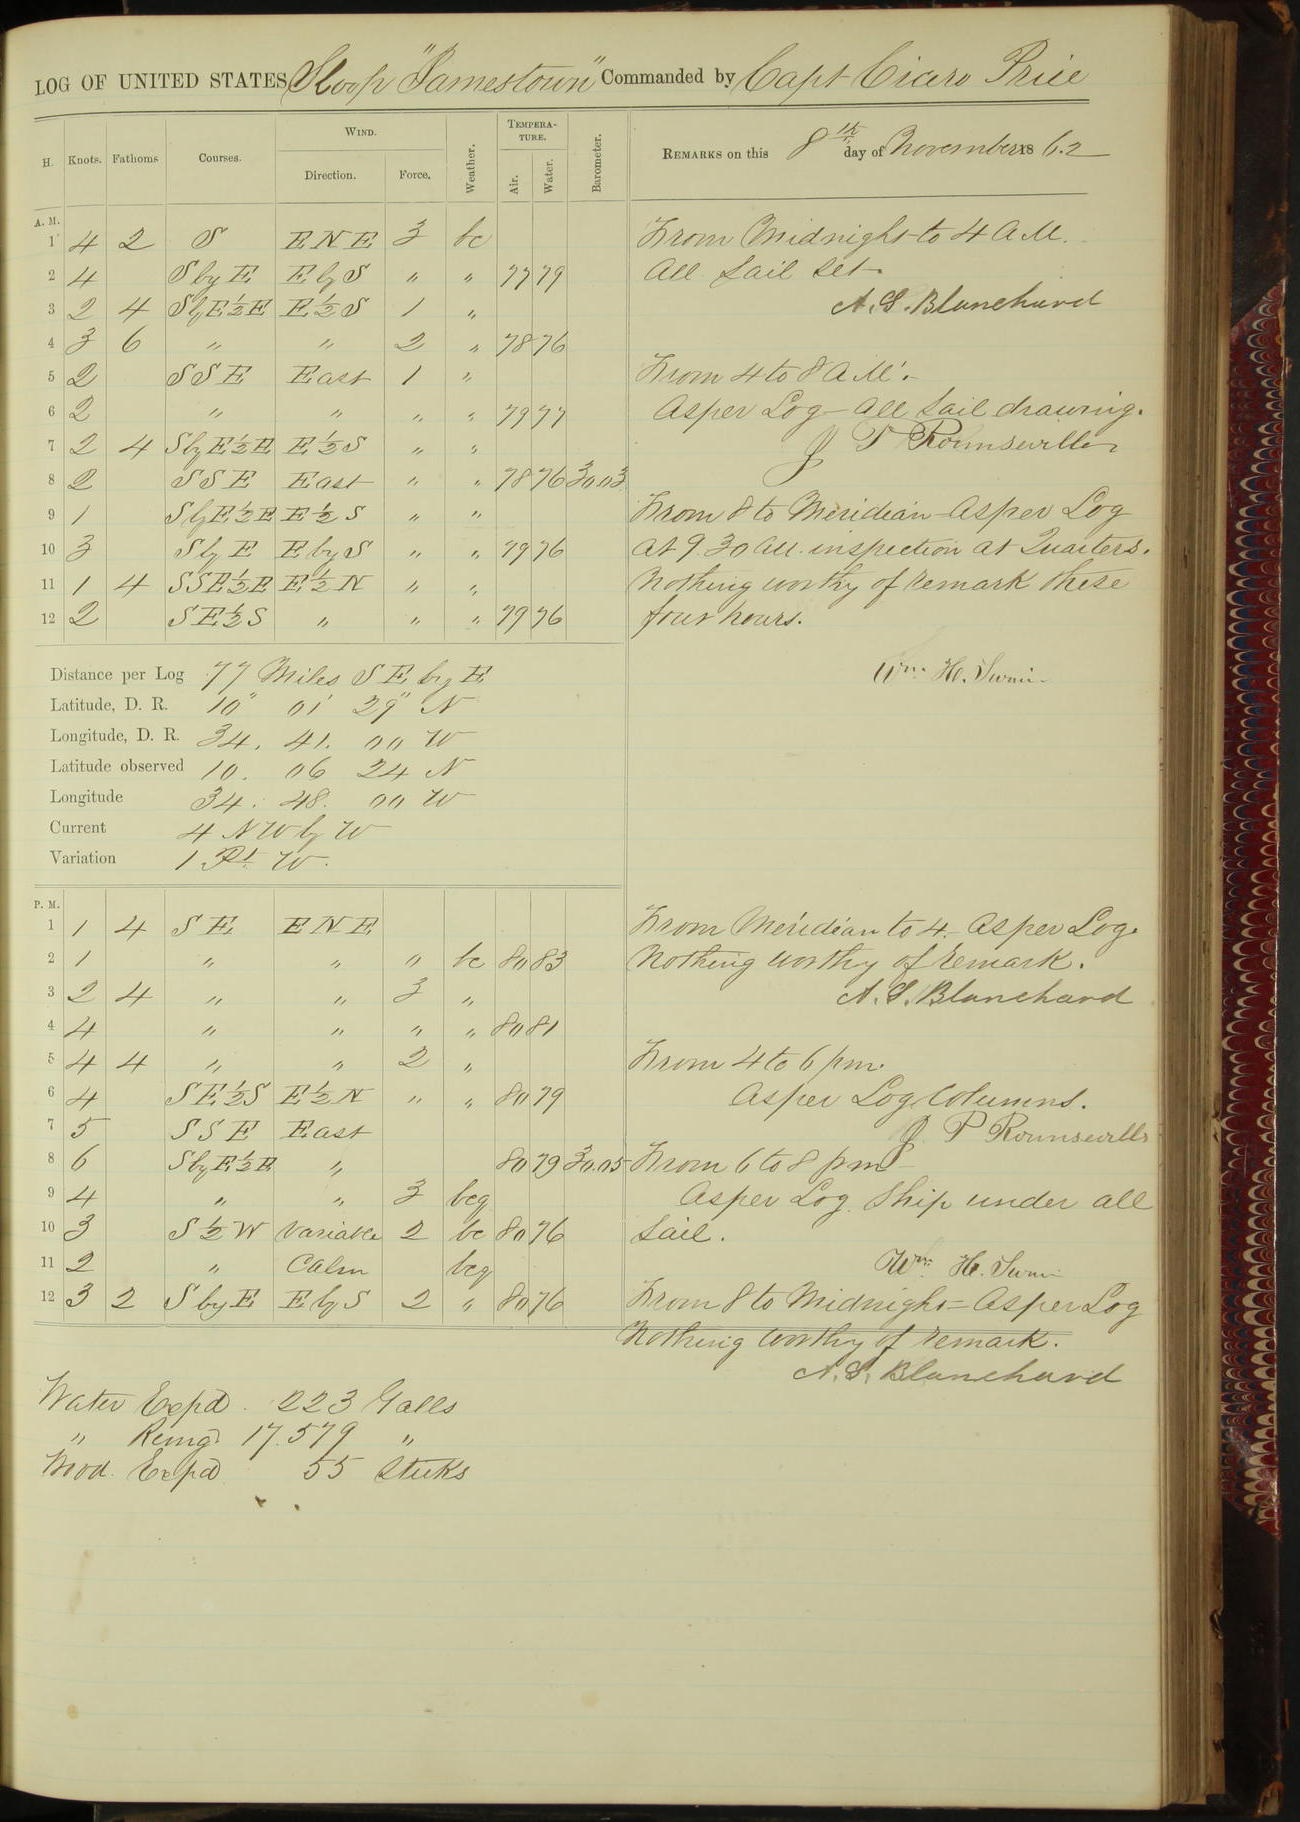 LOG OF UNITED STATES Sloop "Jamestown" Commanded by Capt Cicero Price
H. Knots. Fathoms Courses. WIND. Direction. Force. Weather. TEMPERATURE. Air. Water. Barometer. REMARKS on this 8th day of November 1862
A. M.
1 4 2 S ENE 3 bc From Midnight to 4 AM.
2 4 S by E E by S " " 77 79 All Sail set.
3 2 4 S by E ½ E E ½ S 1 " A. S. Blanchard
4 3 6 " " 2 " 78 76
5 2 SSE East 1 " From 4 to 8 AM.
6 2 " " " " 79 77 As per Log - all sail drawing.
7 2 4 S by E ½ E E ½ S " " J P Rounsevill
8 2 SSE East " " 78 76 30.03
9 1 S by E ½ E E ½ S " " From 8 to Meridian As per Log
10 3 S by E E by S " " 79 76 at 9 30 AM. inspection at Quarters.
11 1 4 SSE ½ E E ½ N " " Nothing worthy of remark these
12 2 SE ½ S " " " 79 76 four hours.
Distance per Log 77 Miles SE by E Wm. H.
Latitude, D. R. 10° 01' 29" N
Longitude, D. R. 34. 41. 00 W
Latitude observed 10. 06 24 N
Longitude 34. 48. 00 W
Current 4 NW by W
Variation 1 Pt. W.
P. M.
1 1 4 SE ENE From Meridian to 4. As per Log.
2 1 " " " bc 80 83 Nothing worthy of remark.
3 2 4 " " 3 " A. S. Blanchard
4 4 " " " " 80 81
5 4 4 " " 2 " From 4 to 6 pm.
6 4 SE ½ S E ½ N " " 80 79 As per Log Columns.
7 5 SSE East J P Rounsevill
8 6 S by E ½ E " 80 79 30.05 From 6 to 8 pm
9 4 " " 3 bcq As per Log. Ship under all
10 3 S ½ W Variable 2 bc 80 76 Sail.
11 2 " Calm bcq Wm. H.
12 3 2 S by E E by S 2 " 80 76 From 8 to Midnight = As per Log
Nothing worthy of remark.
A. S. Blanchard
Water Expd. 223 Galls
" Remg. 17.579 "
Wood. Expd 55 Sticks